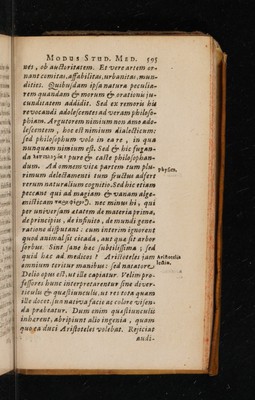 MODUS STUD. MED. 595
ues, ob austeritatem. Et vero artem or-
nant comitas, affabilitas, urbanitas, mun-
dities. Quibusdam ipsa natura peculia-
rem quandam & morum & orationis ju-
cunditatem addidit. Sed ex remoris his
revocandi adolescentes ad veram philoso-
phiam. Argutorem nimium neu amo ado-
lescentem, hoc est nimium dialecticum:
sed philosophum volo in eare, in qua
nunquam nimium est. Sed & hic fugan-
da & pure & caste philosophan-
dum. Ad omnem vitæ partem tum plu-
rimum delectamenti tum fructus adfert
rerum naturalium cognitio. Sed hic etiam
Physica.
peccant qui ad magiam & vanam alge-
misticam nec minus hi, qui
per universam ætatem de materia prima,
de principiis, de infinito, de mundi gene-
ratione disputant: cum interim ignorent
quod animal sit cicada, aut qua sit arbor
sorbus. Sint sane hæc subtilissima; sed
quid hæc ad medicos? Aristoteles jam
Aristotelis lectio.
omnium teritur manibus: sed natatore
Delio opus est, ut ille capiatur. Velim pro-
fessores hunc interpretarentur sine diver-
ticulis & quæstiunculis, ut res tota quam
ille docet, in nativa facie ac colore vi en-
da præbeatur. Dum enim quæstiunculis
inhærent, abripiunt alio ingenia, quam
quo ea duci Aristoteles volebat. Rejiciat
audi-